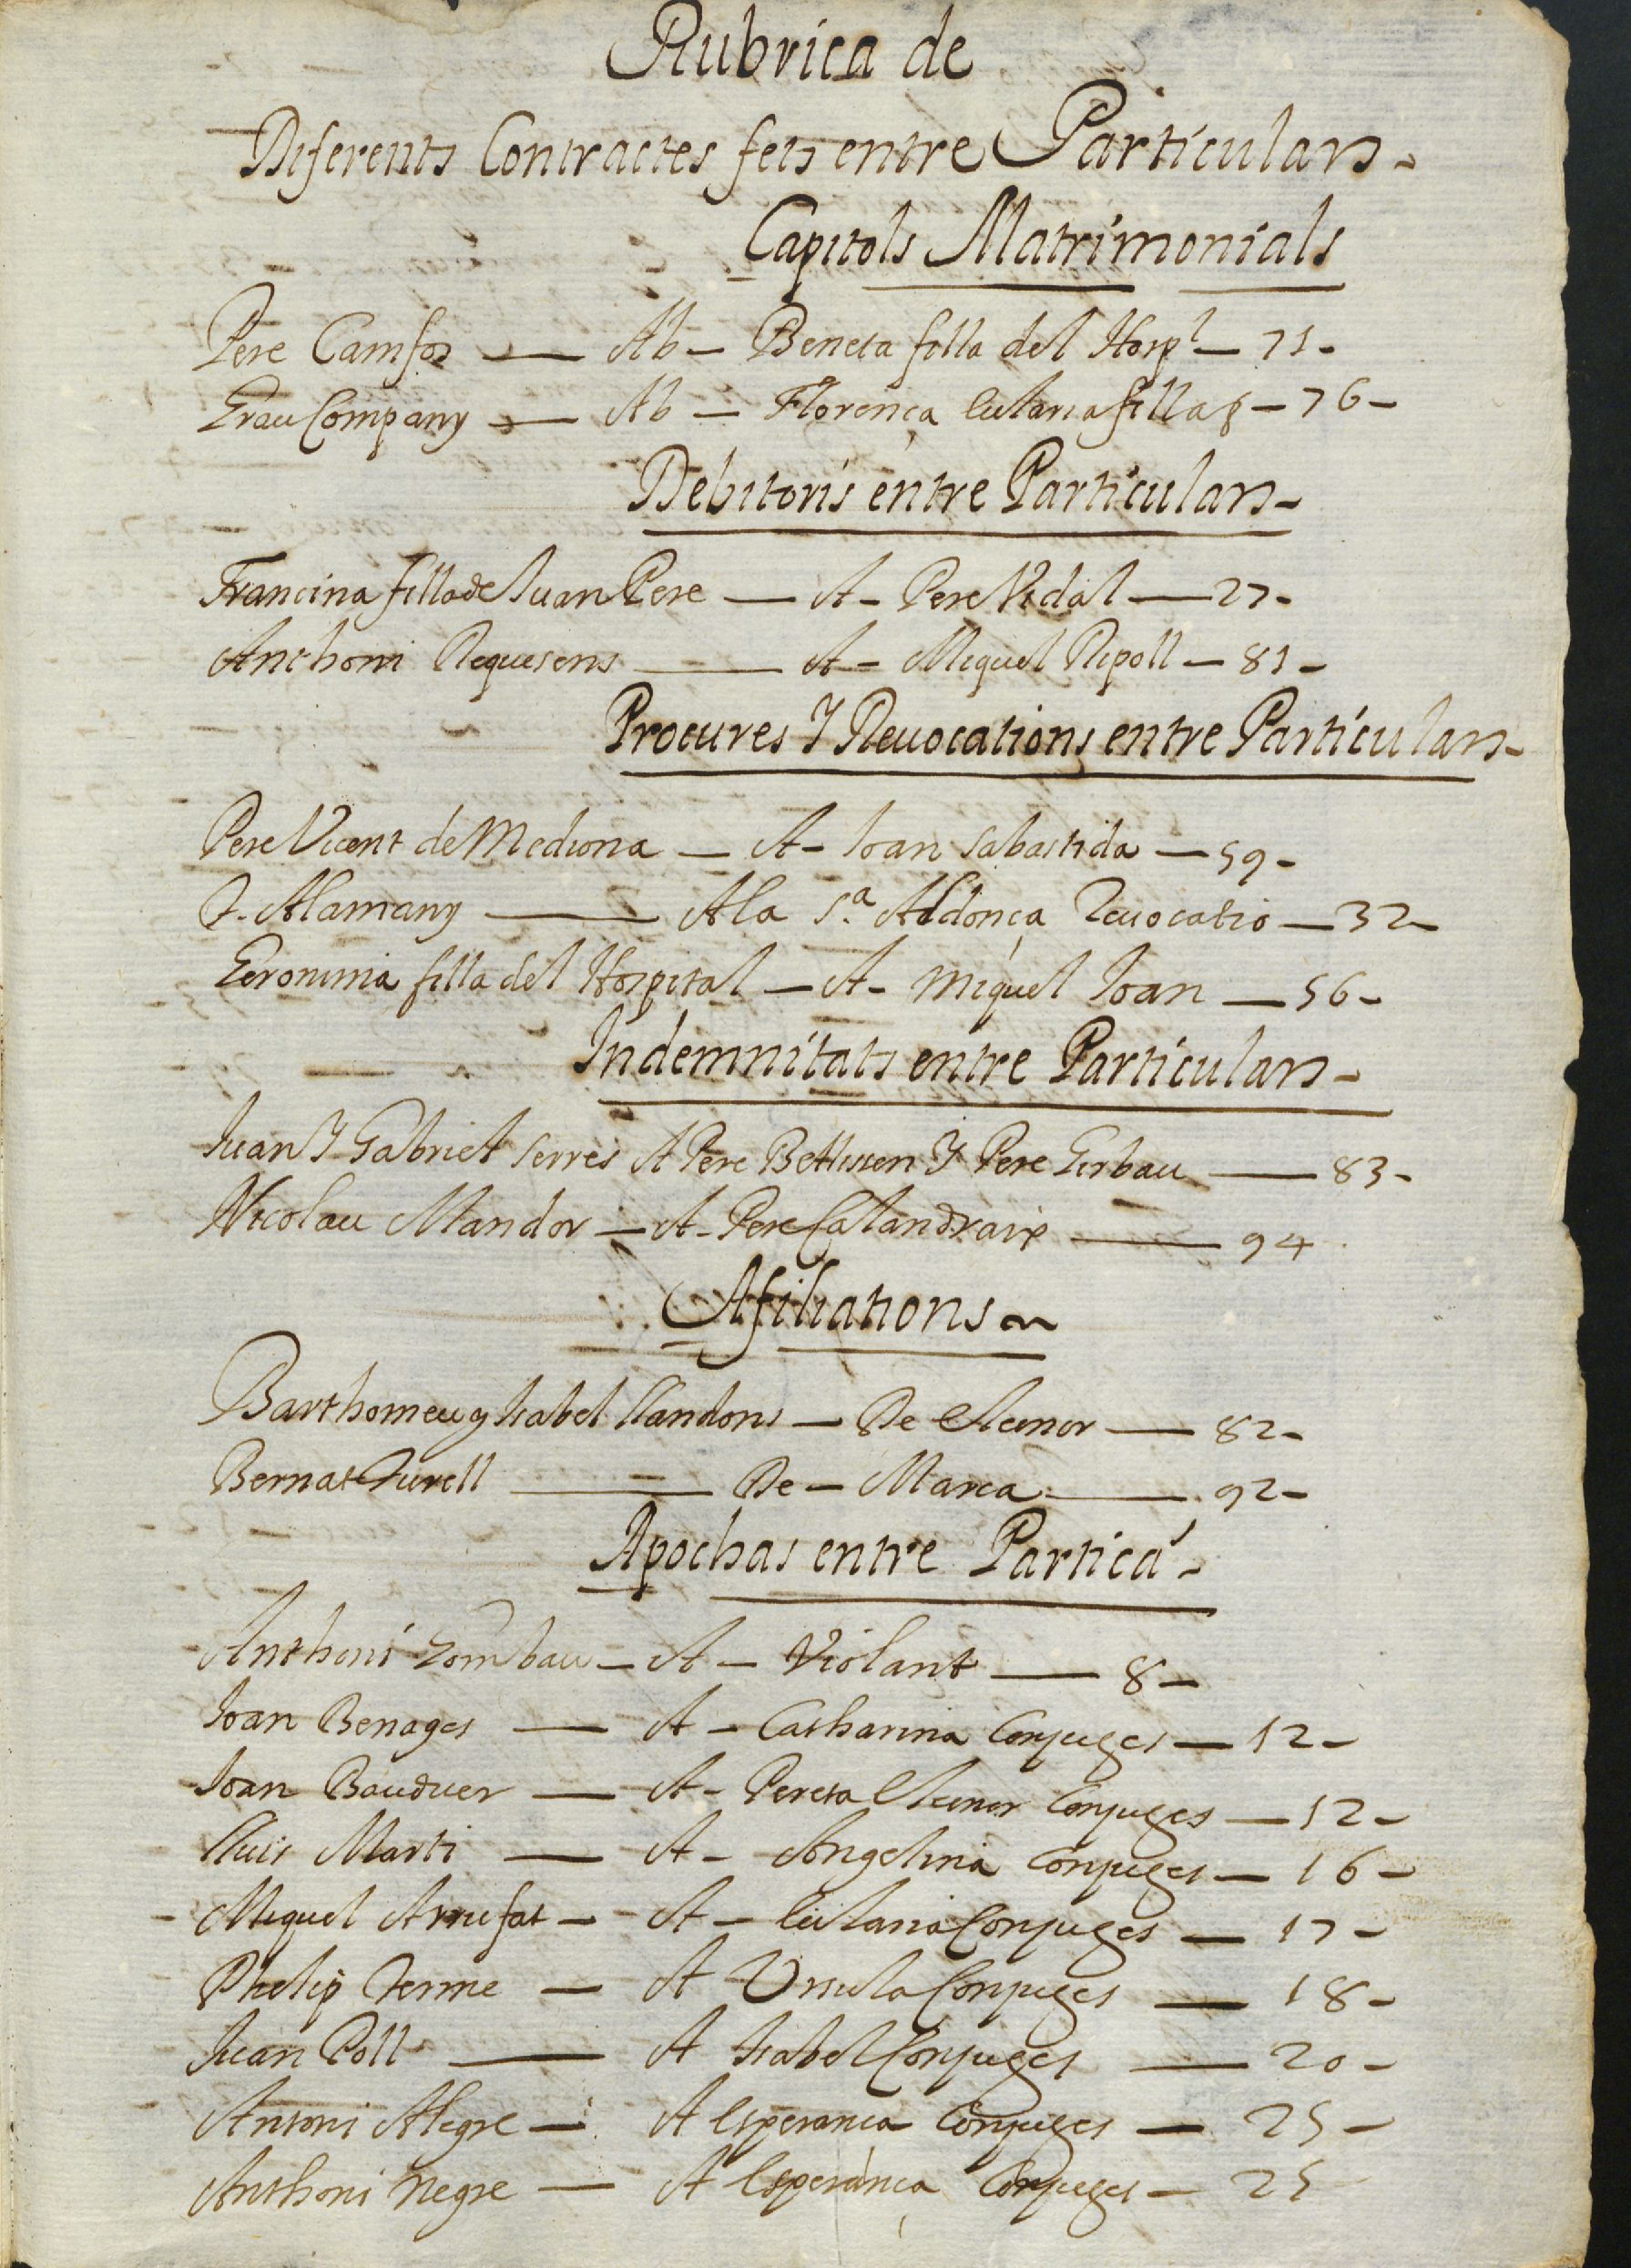 Rubrica de
Diferents Contractes fets entre Particulars-
Capitols Matrimonials
Pere Camfos — Ab - Beneta filla del Hospl - 71-
Grau Company — Ab - Florença Eulariafilla - 76-
Debitoris entre Particulars-
Francina filla de Juan Pere — A - Pere Vidal — 27-
Anthoni Requesens — A - Miquel Ripoll - 81-
Procures Y Revocations entre Particulars-
Pere Vicent de Mediona - A - Joan Sabastida - 59-
J. Alamany — A la Sa. Aldonça Revocatio - 32-
Geronima filla del Hospital - A - Miquel Joan - 56-
Indemnitats entre Particulars-
Juan Y Gabriel Serres A Pere Bellissen Y Pere Girbau — 83-
Nicolau Mandor - A - Pere Calandraix — 94
Afiliations
Barthomeu y Isabel Llandons - De Elienor - 82-
Bernat Turell — De - Marca — 92-
Apochas entre Particá-
Anthoni Gombau - A - Violant — 8-
Joan Benages — A - Catharina Conjuges - 12-
Joan Bauduer — A - Pereta Elienor Conjuges - 12-
Lluis Marti — A - Angelina Conjuges - 16-
Miquel Arrufat - A - Eularia Conjuges - 17-
Phelip Terme — A Ursula Conjuges — 18-
Juan Poll — A Isabel Conjuges — 20-
Antoni Alegre - A Esperanca Conjuges - 25-
Anthoni Negre — A Esperança Conjuges - 25